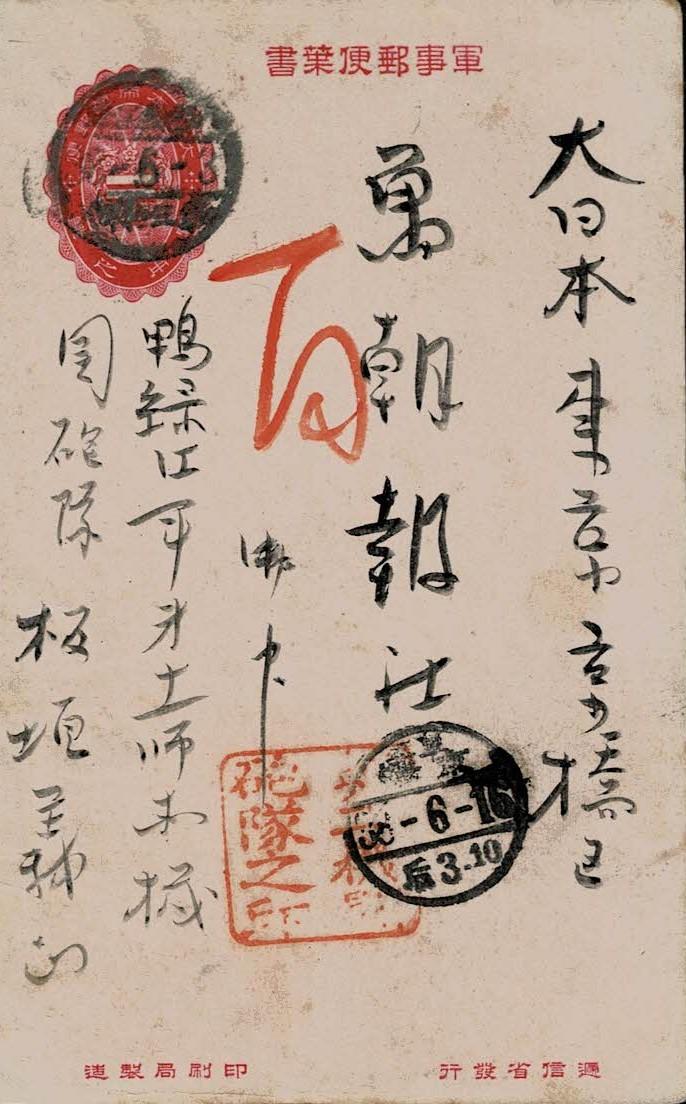 軍事郵便葉書
大日本東京京橋区
萬朝報社
御中
鴨緑江軍才十一師木機
関砲隊 板垣義輔
砲隊之印
38-6-16
后3-10
逓信省發行
印刷局製造